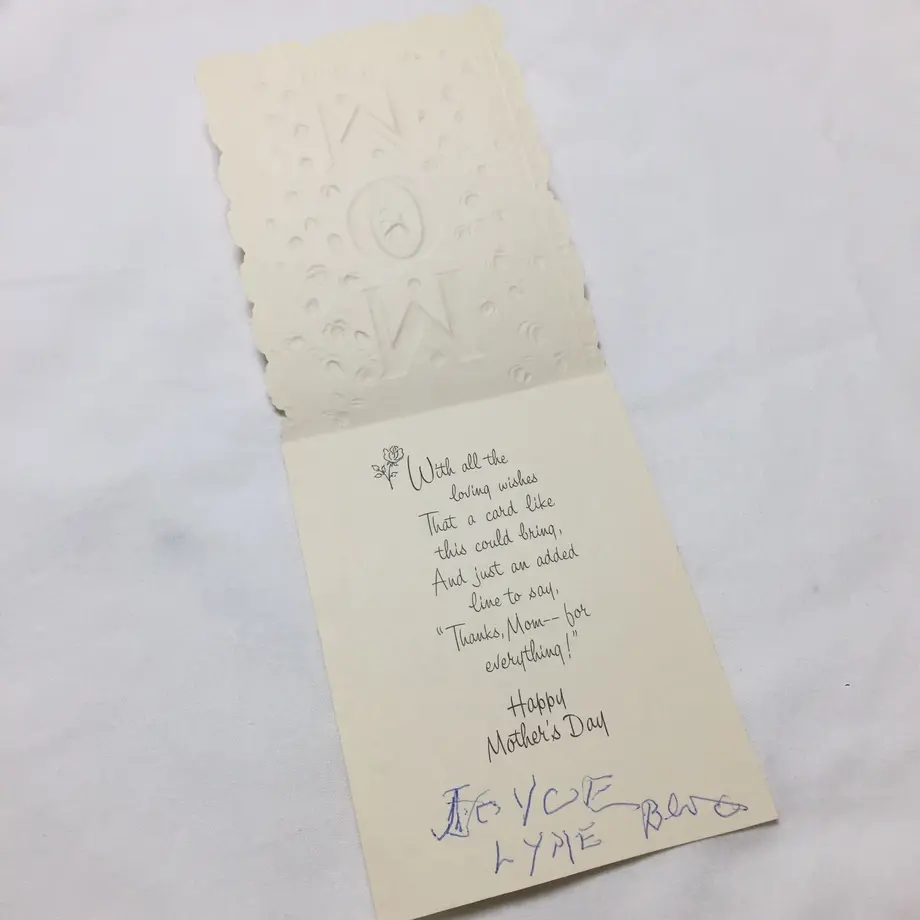 M
O
M
With all the
loving wishes
That a card like
this could bring,
And just an added
line to say,
"Thanks, Mom-- for
everything!"
Happy
Mother's Day
JOYCE
LYME